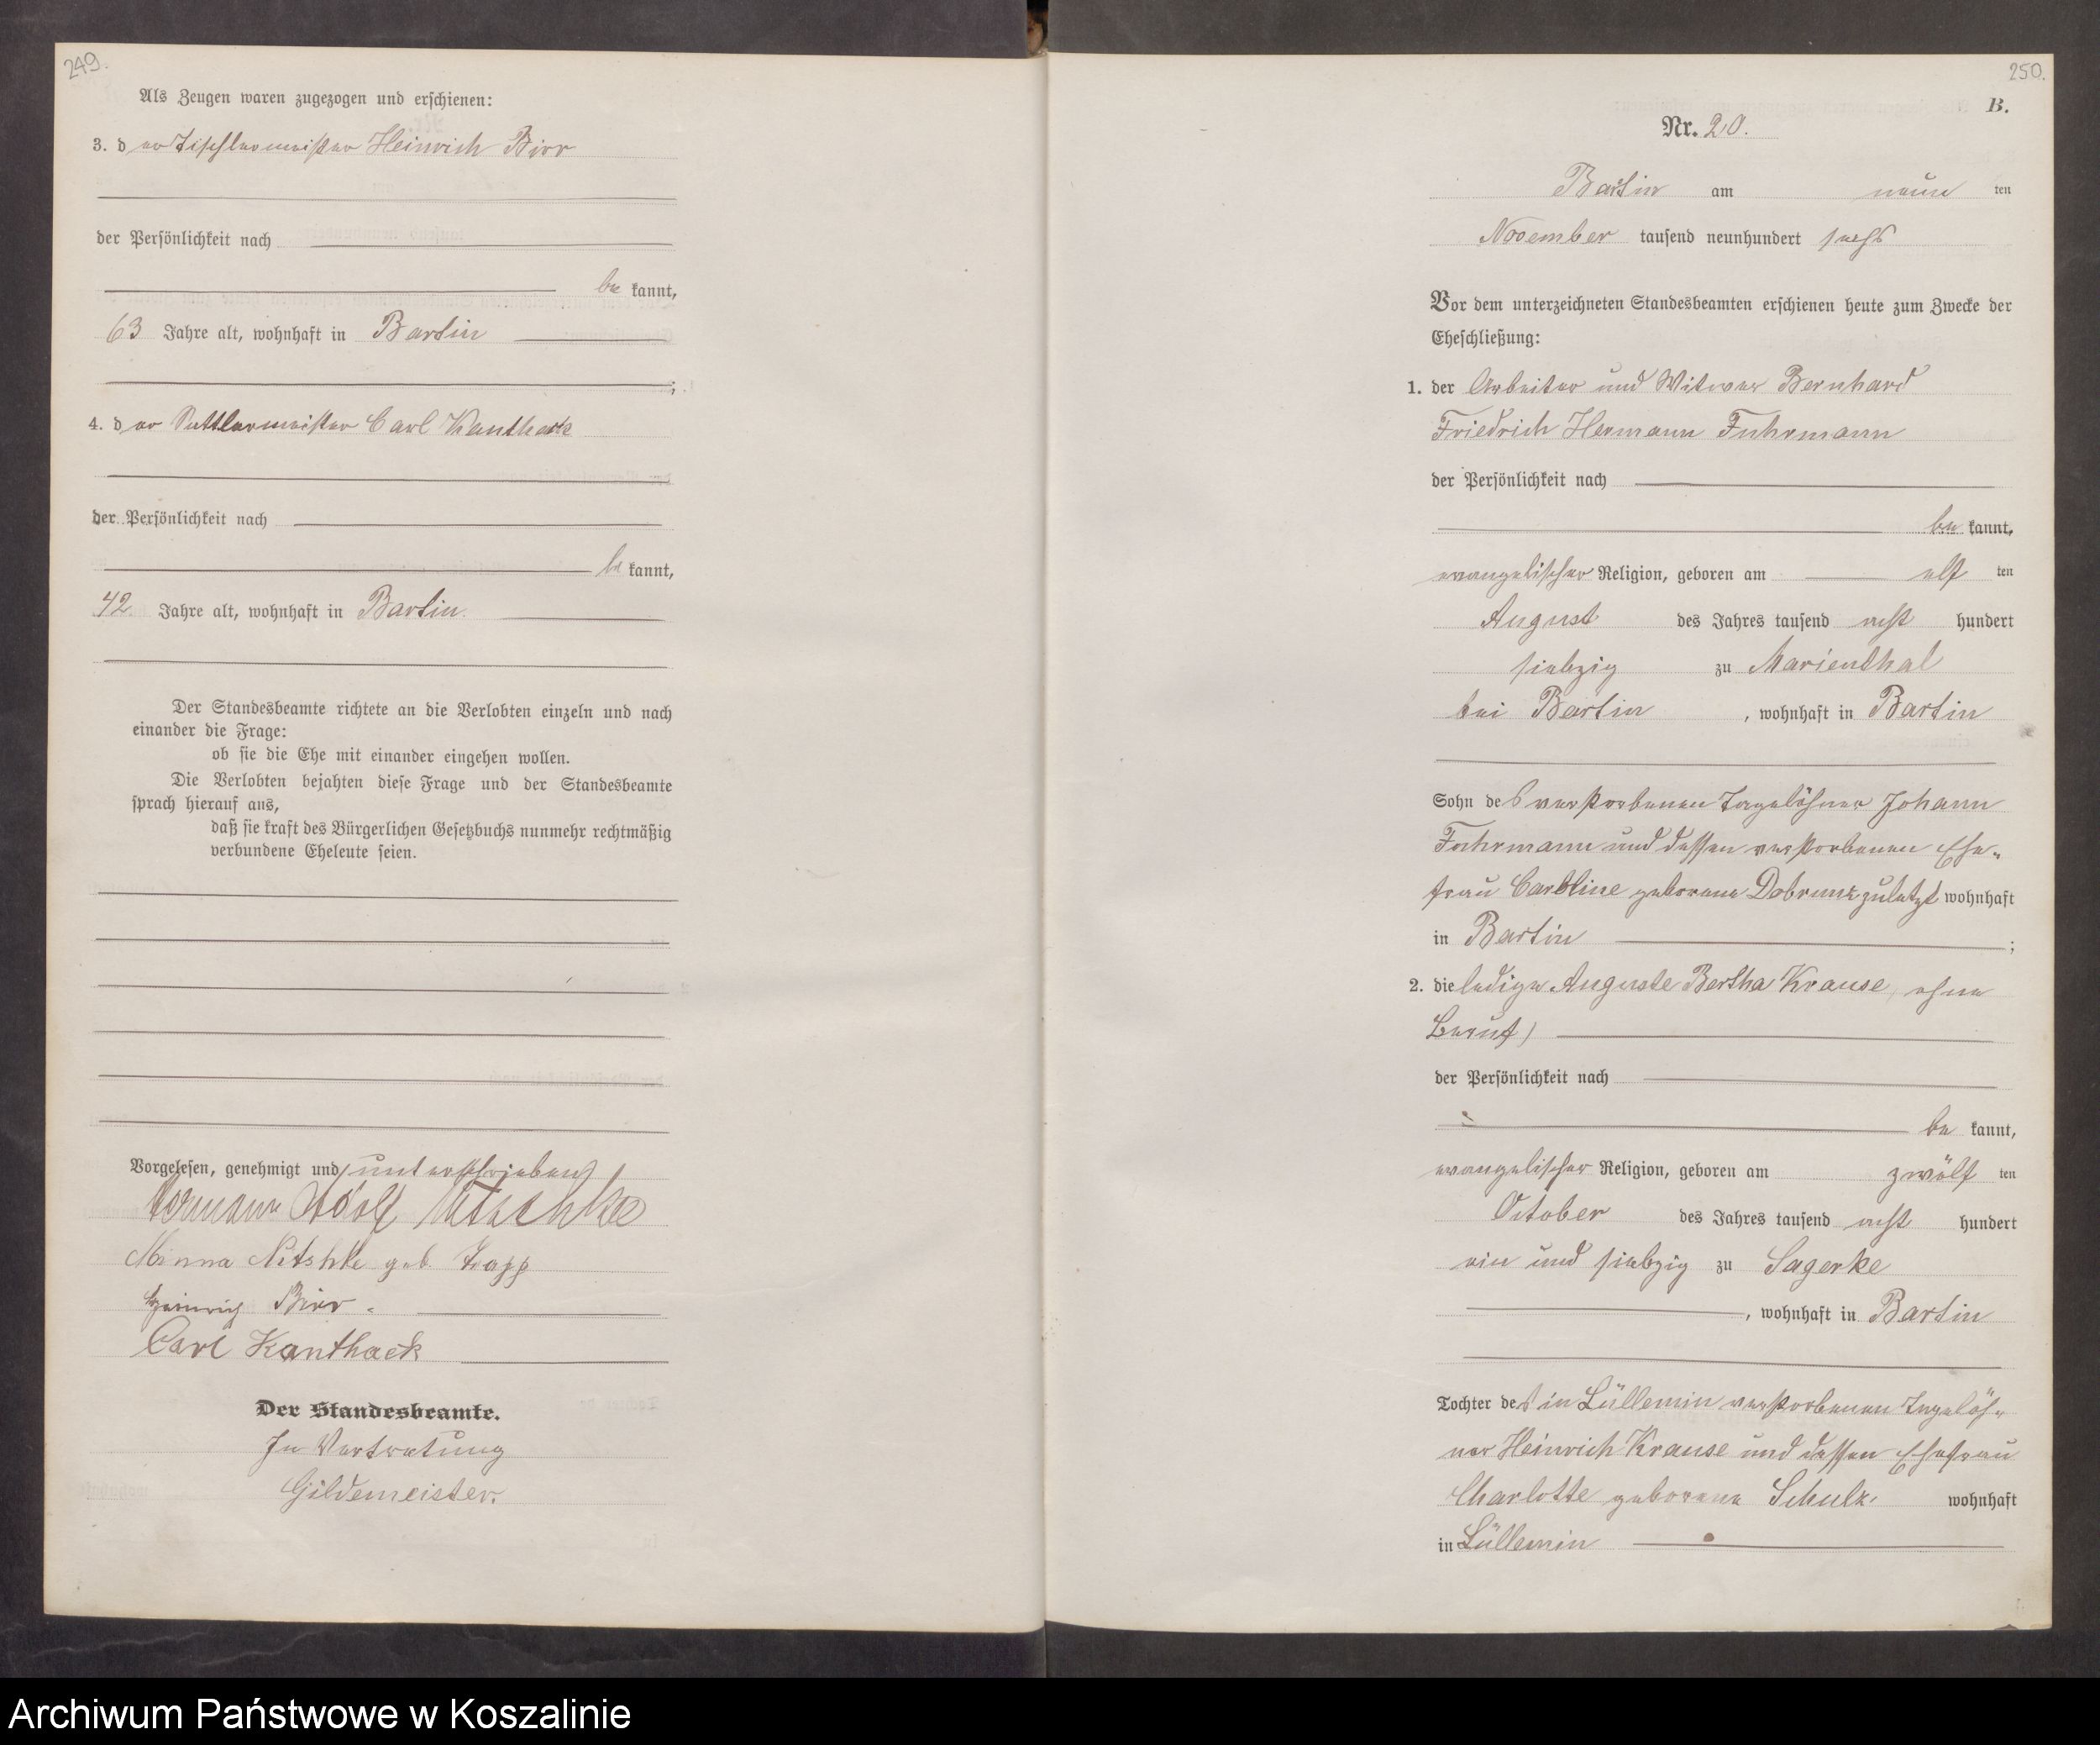 249.
Als Zeugen waren zugezogen und erschienen:
3. der Tischlermeister Heinrich Birr
der Persönlichkeit nach
be kannt,
63 Jahre alt, wohnhaft in Bartin
;
4. der Sattlermeister Carl Kanthack
der Persönlichkeit nach
be kannt,
42 Jahre alt, wohnhaft in Bartin.
Der Standesbeamte richtete an die Verlobten einzeln und nach
einander die Frage:
ob sie die Ehe mit einander eingehen wollen.
Die Verlobten bejahten diese Frage und der Standesbeamte
sprach hierauf aus,
daß sie kraft des Bürgerlichen Gesetzbuchs nunmehr rechtmäßig
verbundene Eheleute seien.
Vorgelesen, genehmigt und unterschrieben
Hermann Adolf Nitschke
Minna Nitshke geb. Papp
Heinrich Birr.
Carl Kanthack
Der Standesbeamte.
In Vertretung
Gildemeister.
250.
B.
Nr. 20.
Bartin am neun ten
November tausend neunhundert sechs
Vor dem unterzeichneten Standesbeamten erschienen heute zum Zwecke der
Eheschließung:
1. der Arbeiter und Witwer Bernhard
Friedrich Hermann Fuhrmann
der Persönlichkeit nach
be kannt,
evangelischer Religion, geboren am elf ten
August des Jahres tausend acht hundert
siebzig zu Marienthal
bei Bartin, wohnhaft in Bartin
Sohn des verstorbenen Tagelöhner Johann
Fuhrmann und dessen verstorbenen Ehe-
frau Caroline geborene Dobrunz zuletzt wohnhaft
in Bartin ;
2. die ledige Auguste Bertha Krause, ohne
Beruf,
der Persönlichkeit nach
be kannt,
evangelischer Religion, geboren am zwölf ten
October des Jahres tausend acht hundert
ein und siebzig zu Sagerke
, wohnhaft in Bartin
Tochter des in Lüllemin verstorbenen Tagelöh-
ner Heinrich Krause und dessen Ehefrau
Charlotte geborene Schulz, wohnhaft
in Lüllemin
Archiwum Państwowe w Koszalinie